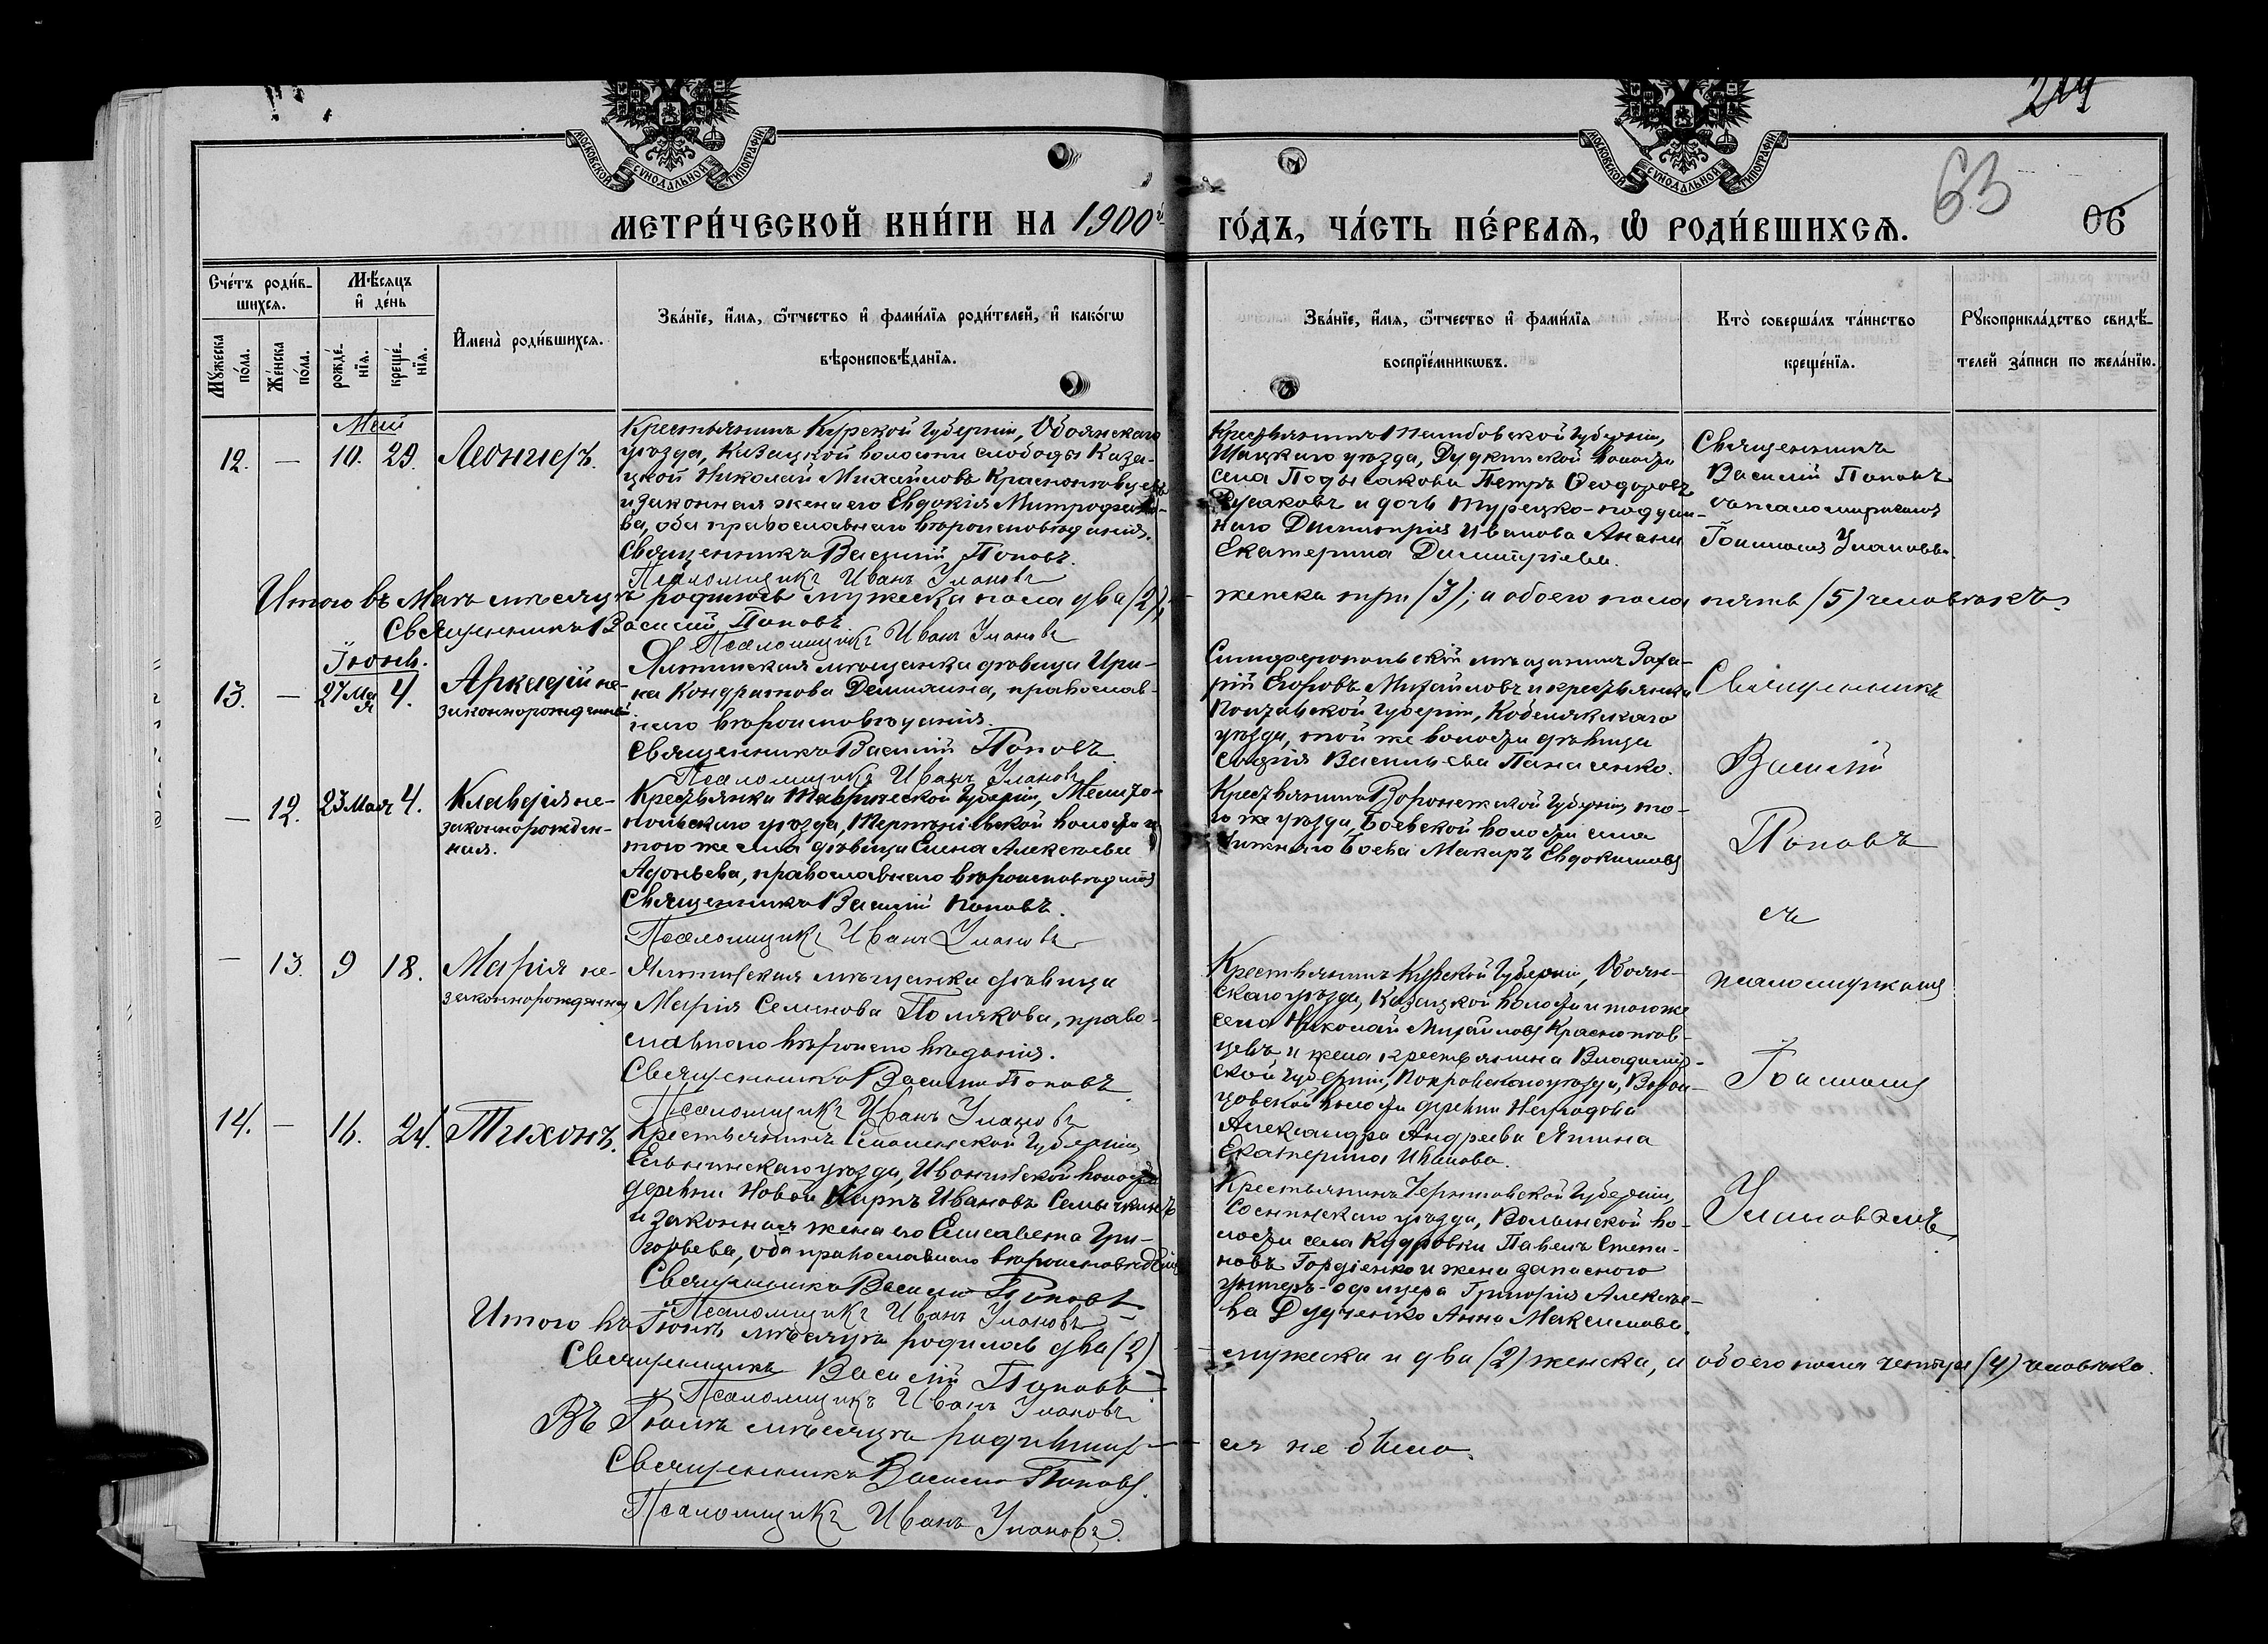 МОСКОВСКОЙ СУНОДАЛЬНОЙ ТИПОГРАФІИ
МОСКОВСКОЙ СУНОДАЛЬНОЙ ТИПОГРАФІИ
63
06
МЕТРИ́ЧЕСКОЙ КНИ́ГИ НА 1900й
ГО́ДЪ, ЧА́СТЬ ПЕ́РВАѦ, Ѡ҆ РОДИ́ВШИХСѦ.
Сче́тъ роди́в-
шихсѧ.
Мѣ́сѧцъ
и҆ де́нь
Мꙋ́жеска по́ла.
Же́нска по́ла.
рожде́-нїѧ.
креще́-нїѧ.
И҆мена̀ роди́вшихсѧ.
Зва́нїе, и҆́мѧ, ѻ҆́тчество и҆ фами́лїѧ роди́телей, и҆ како́гѡ
вѣроисповѣ́данїѧ.
Зва́нїе, и҆́мѧ, ѻ҆́тчество и҆ фами́лїѧ
воспрїе́мникѡвъ.
Кто̀ соверша́лъ та́инство
креще́нїѧ.
Рꙋкоприкла́дство свидѣ́-
телей за́писи по жела́нїю.
Май
12. — 10. 29. Леонидъ.
Крестьянинъ Курской губерніи, Обоянскаго
уѣзда, Казацкой волости слободы Каза-
цкой Николай Михайловъ Краснопивцевъ
и законная жена его Евдокія Митрофано-
ва, оба православнаго вѣроисповѣданія.
Священникъ Василій Поповъ.
Псаломщикъ Иванъ Улановъ
Крестьянинъ Тамбовской губерніи,
Шацкаго уѣзда, волости
села Петръ Ѳеодоровъ
Русаковъ и дочь турецко-поддан-
наго Димитрія Иванова
Екатерина Димитріева.
Священникъ
Василій Поповъ
съ псаломщикомъ
Іоанномъ Улановымъ.
Итого въ Маѣ мѣсяцѣ родилось мужеска пола два (2), женска три (3); а обоего пола пять (5) человѣкъ.
Священникъ Василій Поповъ
Псаломщикъ Иванъ Улановъ
Іюнь.
13. — 27 Мая 4. Аркадій не-
законнорожденный
Ялтинская мѣщанка дѣвица Ири-
на Кондратова Демихина, православ-
наго вѣроисповѣданія.
Священникъ Василій Поповъ
Псаломщикъ Иванъ Улановъ
Симферопольскій мѣщанинъ Заха-
рій Егоровъ Михайловъ и крестьянка
Полтавской губерніи, Кобелякскаго
уѣзда, той же волости дѣвица
Софія Васильева Панасенко.
Священникъ
Василій
Поповъ
съ
псаломщикомъ
Іоанномъ
Улановымъ
— 12. 23 Мая 4. Клавдія не-
законнорожден-
ная.
Крестьянка Таврической губерніи, Мелито-
польскаго уѣзда, волости и
того же села дѣвица Елена Алексѣева
Афоньева, православнаго вѣроисповѣданія
Священникъ Василій Поповъ.
Псаломщикъ Иванъ Улановъ
Крестьянинъ Воронежской губерніи, то-
го же уѣзда, Боевской волости села
Нижняго Боева Макаръ Евдокимовъ
— 13. 9 18. Марія не-
законнорожденная
Ялтинская мѣщанка дѣвица
Марія Семенова Полякова, право-
славнаго вѣроисповѣданія.
Священникъ Василій Поповъ
Псаломщикъ Иванъ Улановъ
Крестьянинъ Курской губерніи, Обоян-
скаго уѣзда, Казацкой волости и того же
села Николай Михайловъ Краснопив-
цевъ, и жена крестьянина Владимір-
ской губерніи, Покровскаго уѣзда,
волости деревни
Александра Андреева Яшина
Екатерина Иванова.
14. — 16. 24. Тихонъ.
Крестьянинъ Смоленской губерніи,
Ельнинскаго уѣзда, волости
деревни Новой Киръ Ивановъ
и законная жена его Елисавета Гри-
горьева, оба православнаго вѣроисповѣданія
Священникъ Василій Поповъ
Псаломщикъ Иванъ Улановъ
Крестьянинъ Черниговской губерніи,
Сосницкаго уѣзда, Волынской во-
лости села Кудровки Павелъ Степа-
новъ Гордіенко и жена запаснаго
унтеръ-офицера Григорія Алексѣе-
ва Дудченко Анна Максимова.
Итого въ Іюнѣ мѣсяцѣ родилось два (2) мужеска и два (2) женска, а обоего пола четыре (4) человѣка.
Священникъ Василій Поповъ
Псаломщикъ Иванъ Улановъ
Въ Іюлѣ мѣсяцѣ родивших-ся не было.
Священникъ Василій Поповъ.
Псаломщикъ Иванъ Улановъ.